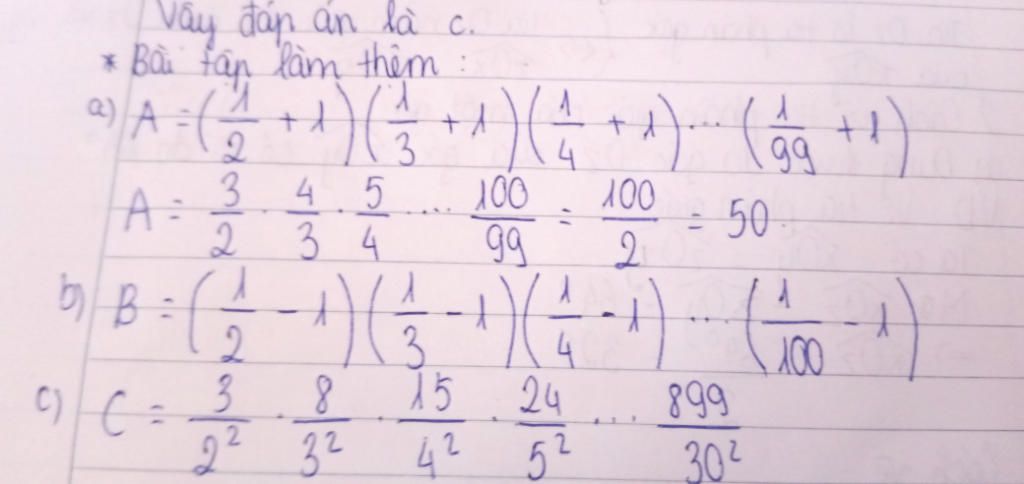 Vậy đáp án là c.
* Bài tập làm thêm :
a) A = (1/2 + 1) (1/3 + 1) (1/4 + 1) ... (1/99 + 1)
A = 3/2 . 4/3 . 5/4 .... 100/99 = 100/2 = 50.
b) B = (1/2 - 1) (1/3 - 1) (1/4 - 1) ... (1/100 - 1)
c) C = 3/2² . 8/3² . 15/4² . 24/5² ... 899/30²